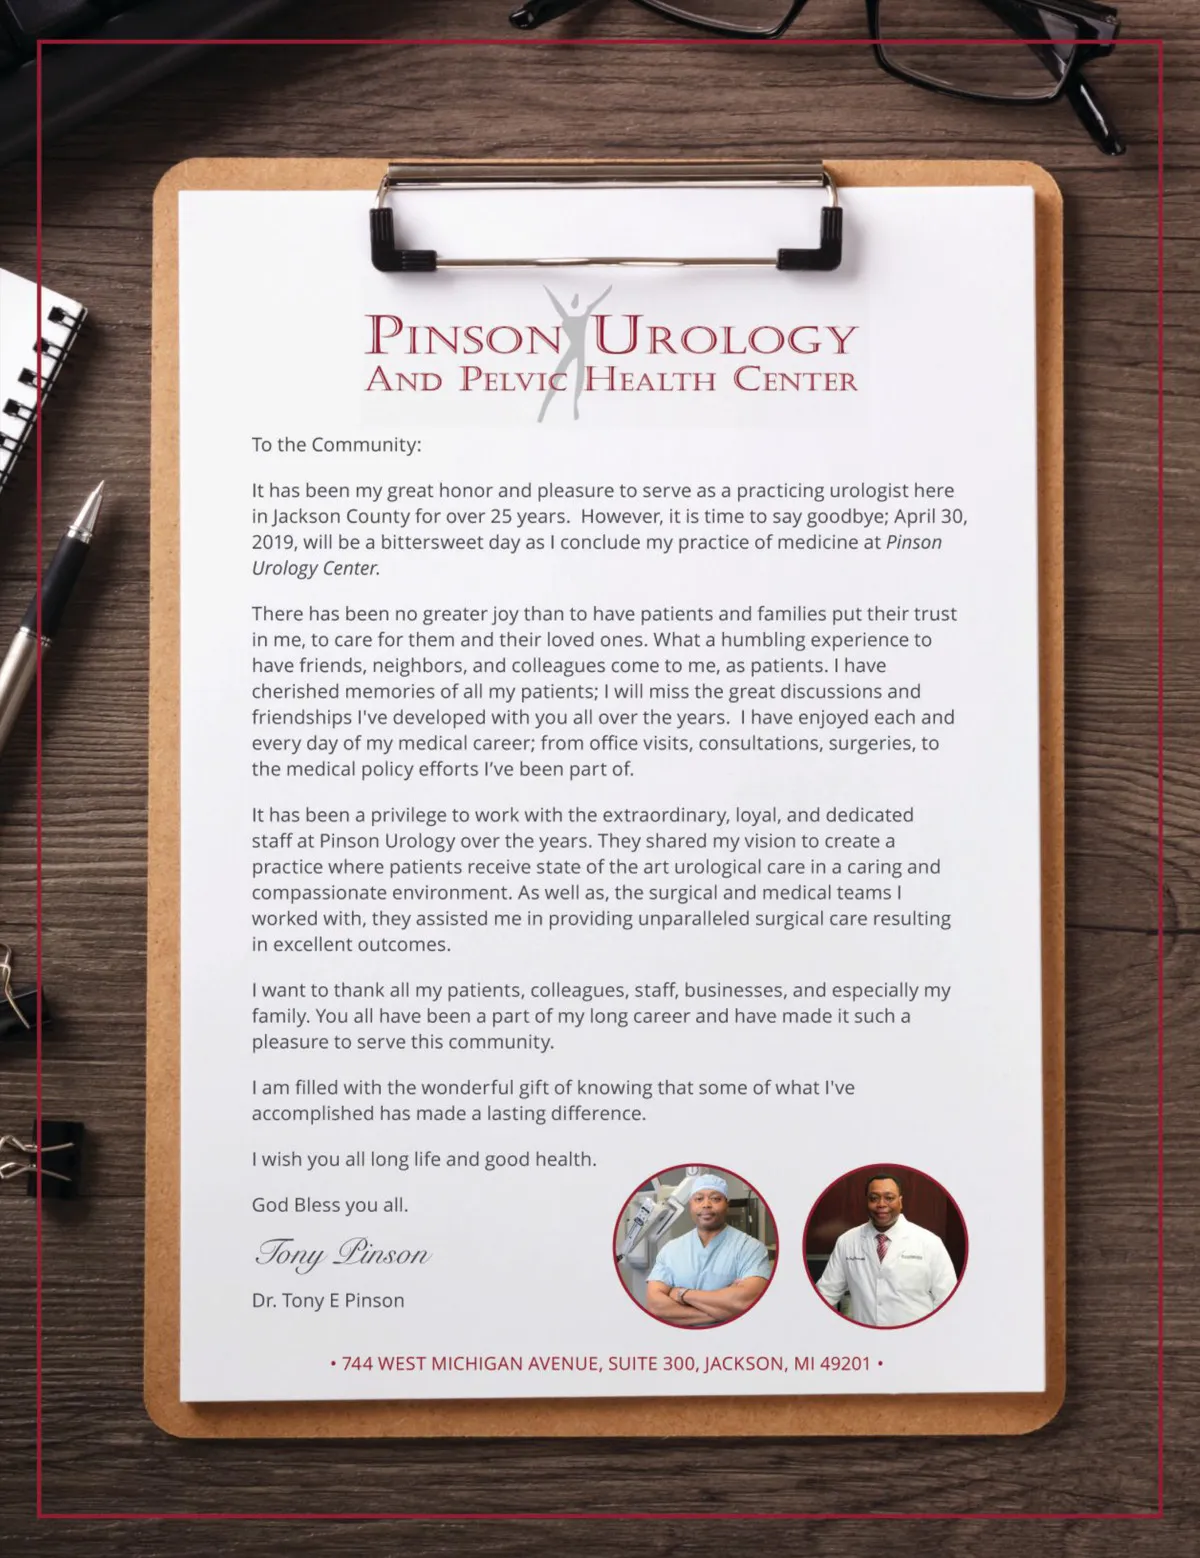 PINSON UROLOGY
AND PELVIC HEALTH CENTER
To the Community:
It has been my great honor and pleasure to serve as a practicing urologist here
in Jackson County for over 25 years.  However, it is time to say goodbye; April 30,
2019, will be a bittersweet day as I conclude my practice of medicine at Pinson
Urology Center.
There has been no greater joy than to have patients and families put their trust
in me, to care for them and their loved ones. What a humbling experience to
have friends, neighbors, and colleagues come to me, as patients. I have
cherished memories of all my patients; I will miss the great discussions and
friendships I've developed with you all over the years.  I have enjoyed each and
every day of my medical career; from office visits, consultations, surgeries, to
the medical policy efforts I’ve been part of.
It has been a privilege to work with the extraordinary, loyal, and dedicated
staff at Pinson Urology over the years. They shared my vision to create a
practice where patients receive state of the art urological care in a caring and
compassionate environment. As well as, the surgical and medical teams I
worked with, they assisted me in providing unparalleled surgical care resulting
in excellent outcomes.
I want to thank all my patients, colleagues, staff, businesses, and especially my
family. You all have been a part of my long career and have made it such a
pleasure to serve this community.
I am filled with the wonderful gift of knowing that some of what I've
accomplished has made a lasting difference.
I wish you all long life and good health.
God Bless you all.
Tony Pinson
Dr. Tony E Pinson
• 744 WEST MICHIGAN AVENUE, SUITE 300, JACKSON, MI 49201 •